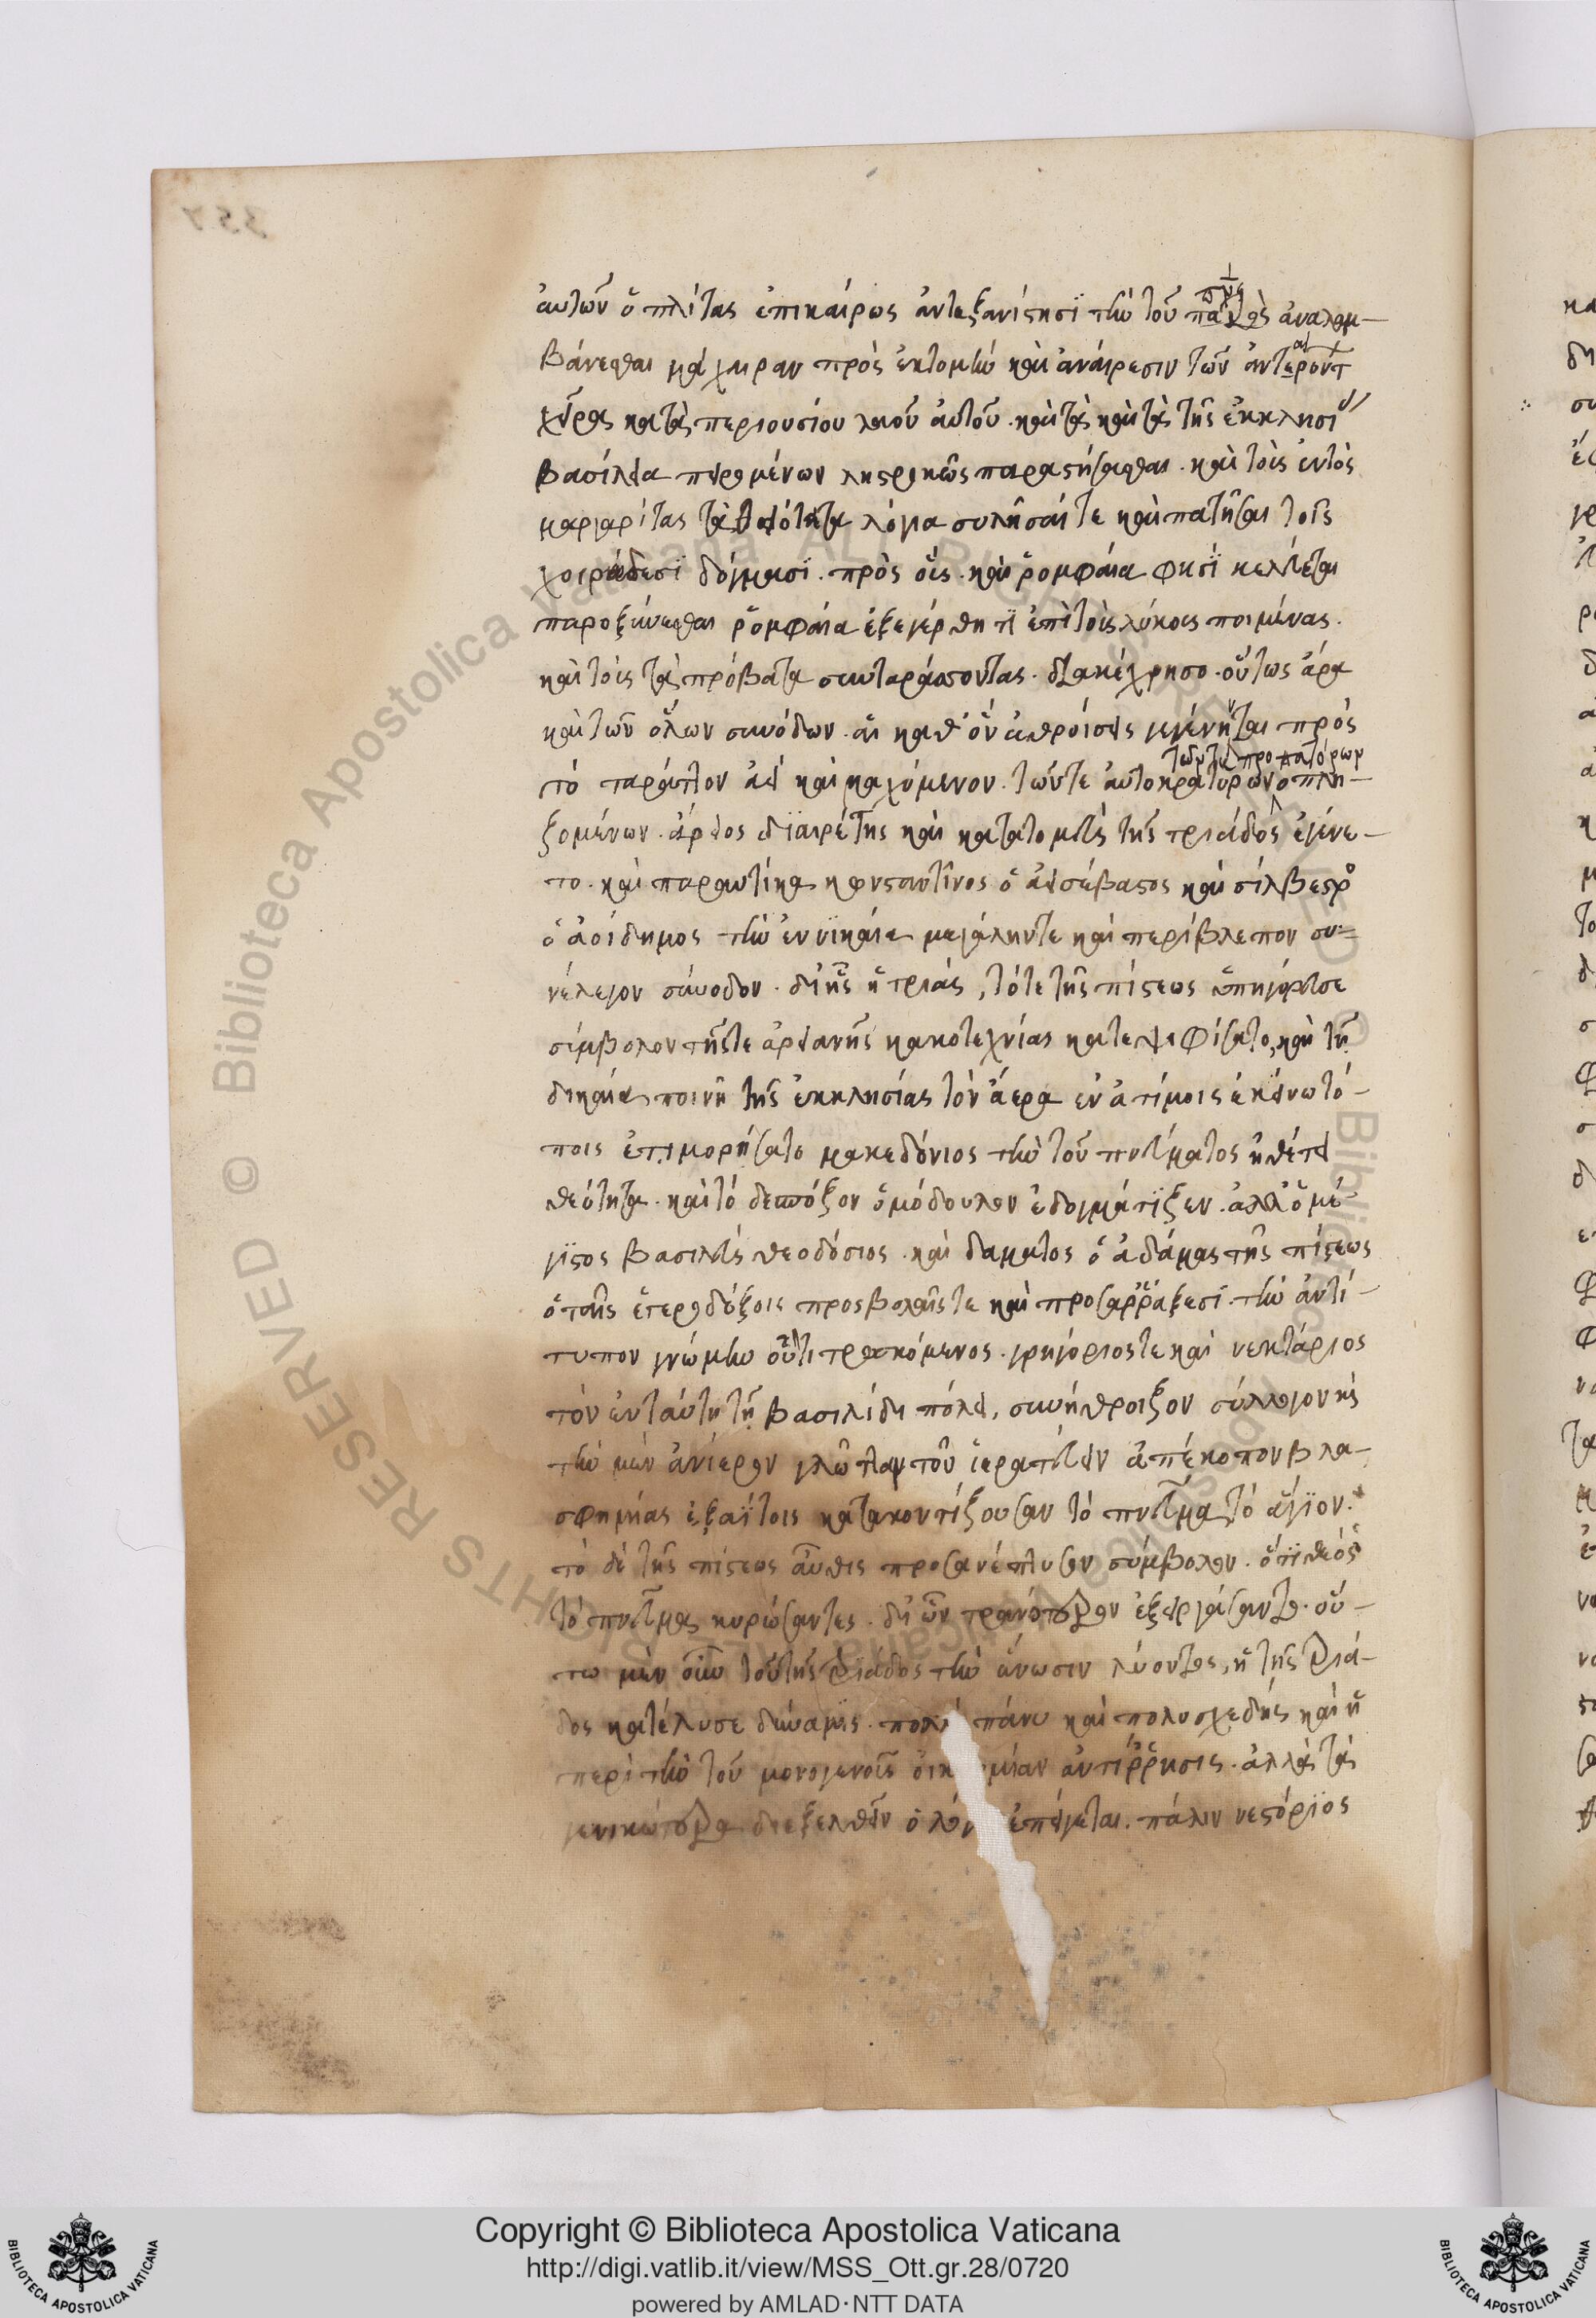 αὐτῶν ὁπλίτας ἐπικαίρως ἀντεξανίστησϊ τὴν τοῦ πν̅ς ἀναλαμ-
βάνεσθαι μάχαιραν πρὸς ἐκτομὴν καὶ ἀναίρεσιν τῶν
χεῖρας κατὰ περιουσίου λαοῦ αὐτοῦ. καὶ τὰς καὶ τὰς τῆς ἐκκλησί
βασίλεια πειρωμένων ληστρικῶς παραστήσασθαι. καὶ τοὶς ἐντὸς
μαργαρίτας τὰ θειότατα λόγια συλῆσαί τε καὶ πατῆσαι τοῖς
χοιράδεσϊ δόγμασϊ. πρὸς οἷς. καὶ ῥομφαία φησῒ κελεύεται
παροξύνεσθαι ῥομφαία ἐξεγέρθητϊ ἐπὶ τοὶς λύκοις ποιμένας.
καὶ τοὶς τὰ πρόβατα συνταράσσοντας. διακέχρησο. οὕτως ἄρα
καὶ τῶν ὅλων συνόδων. αἱ καθ' ὃν ἀθροίσεις γεγένηνται πρὸς
τὸ ταράττον ἀεὶ καὶ μαχόμενον. τῶν τε αὐτοκρατόρων τῶν τε προπατόρων ὁπλι-
ζομένων. ἄρειος διαιρέτης καὶ κατατομεὺς τῆς τριάδος ἐγένε-
το. καὶ παραυτίκα κωνσταντῖνος ὁ ἀεισέβαστος καὶ σίλβεστρο
ὁ ἀοίδημος τὴν ἐν νϊκαία μεγάλην τε καὶ περίβλεπον συ-
νέλεγον σύνοδον. δι' ἧς ἡ τριὰς, τότε τῆς πίστεως ὑπηγόρευσε
σύμβολον τῆς τε ἀρειανῆς κακοτεχνίας κατεψηφίσατο, καὶ τῇ
δικαία ποινῆ τῆς ἐκκλησίας τὸν ἀέρα ἐν ἀτίμοις ἐκκένω τό-
ποις ἐτιμορήσατο μακεδόνιος τὴν τοῦ πνεύματος ἠθέτει
θεότητα. καὶ τὸ δεσπόζον ὁμόδουλον ἐδογμάτϊζεν. ἀλλ' ὁ μέ-
γϊστος βασιλεὺς θεοδόσιος. καὶ δαματος ὁ ἀδάμας τῆς πίστεως
ὁ ταῖς ἑτεροδόξοις προσβολαῖς τε καὶ προσαρράξεσϊ. τὴν ἀντί-
τυπον γνώμην οὔτι τρεσκόμενος. γρηγόριος τε καὶ νεκτάριος
τὸν ἐν ταύτη τῆ βασιλίδι πόλει, συνήθροιζον σύλλογον ἧς
τὴν μὲν ἀνίερον γλῶτταν τοῦ ἱερατεύειν ἀπέκοπον βλα-
σφημίας ἐξαϊτοις κατακοντίζουσαν τὸ πνεῦμα τὸ ἅγϊον.
τὸ δὲ τῆς πίστεως αὖθις προσανέπτυσον σύμβολον. ὅτϊ θεὸς
τὸ πνεῦμα κυρώσαντες. δι' ὧν τρανότερον ἐξειργάσαντο. οὕ-
τω μὲν οὖν τοὺς τῆς τριάδος τὴν ἕνωσιν λύοντας, ἡ τῆς τριά-
δος κατέλυσε δύναμϊς. πολλὴ πάνυ καὶ πολυσχεδὴς καὶ ἡ
περὶ τὴν τοῦ μονογενοῦς οἰκ μίαν ἀντίρρησις. ἀλλὰ τὰς
γενικώτερα διεξελθεῖν ὁ λόγ ἐπείγεται. πάλιν νεστόρϊος
Copyright © Biblioteca Apostolica Vaticana
http://digi.vatlib.it/view/MSS_Ott.gr.28/0720
powered by AMLAD·NTT DATA